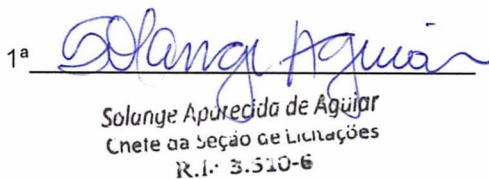 1ª Solange Aguiar
Solange Aparecida de Aguiar
Chefe da Seção de Licitações
R.I. 3.510-6